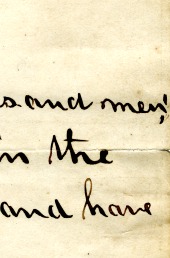 s and men;
in the
and have